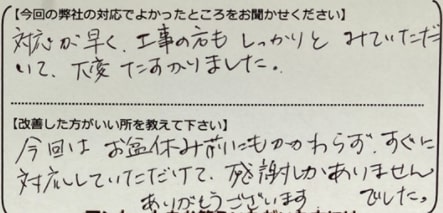 【今回の弊社の対応でよかったところをお聞かせください】
対応が早く、工事の方も しっかりと みていただ
いて、大変 たすかりました。
【改善した方がいい所を教えて下さい】
今回は お盆休み前にもかかわらず、すぐに
対応していただけて、感謝しかありません
ありがとうございます でした。